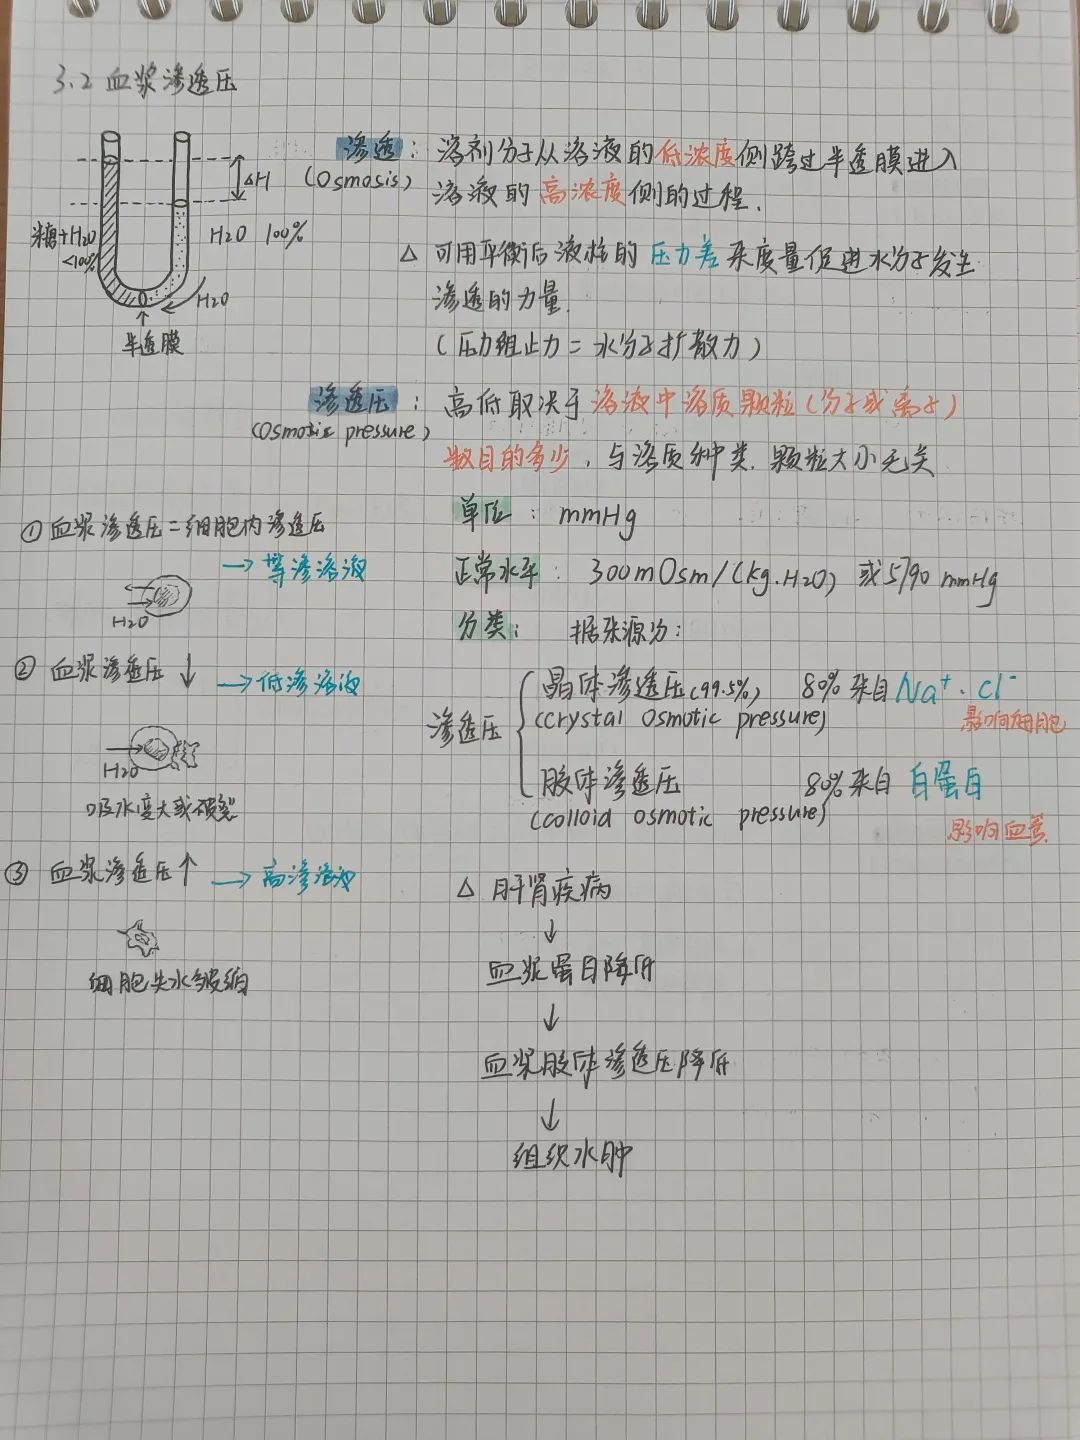 3.2 血浆渗透压
渗透：溶剂分子从溶液的低浓度侧跨过半透膜进入
(Osmosis) 溶液的高浓度侧的过程.
△H
蔗糖+H2O
<100%
H2O 100%
H2O
半透膜
△ 可用平衡后液柱的压力差来度量促进水分子发生
渗透的力量.
(压力阻止力=水分子扩散力)
渗透压：高低取决于溶液中溶质颗粒(分子或离子)
(osmotic pressure) 数目的多少，与溶质种类.颗粒大小无关
单位：mmHg
正常水平：300mOsm/(kg.H2O) 或5790 mmHg
分类：据来源分：
渗透压
晶体渗透压(99.5%) 80%来自Na+.Cl-
(crystal osmotic pressure) 影响细胞
胶体渗透压 80%来自 白蛋白
(colloid osmotic pressure) 影响血管
△ 肝肾疾病
↓
血浆蛋白降低
↓
血浆胶体渗透压降低
↓
组织水肿
① 血浆渗透压=细胞内渗透压
→等渗溶液
H2O
② 血浆渗透压↓ →低渗溶液
H2O
吸水变大或破裂
③ 血浆渗透压↑ →高渗溶液
细胞失水皱缩